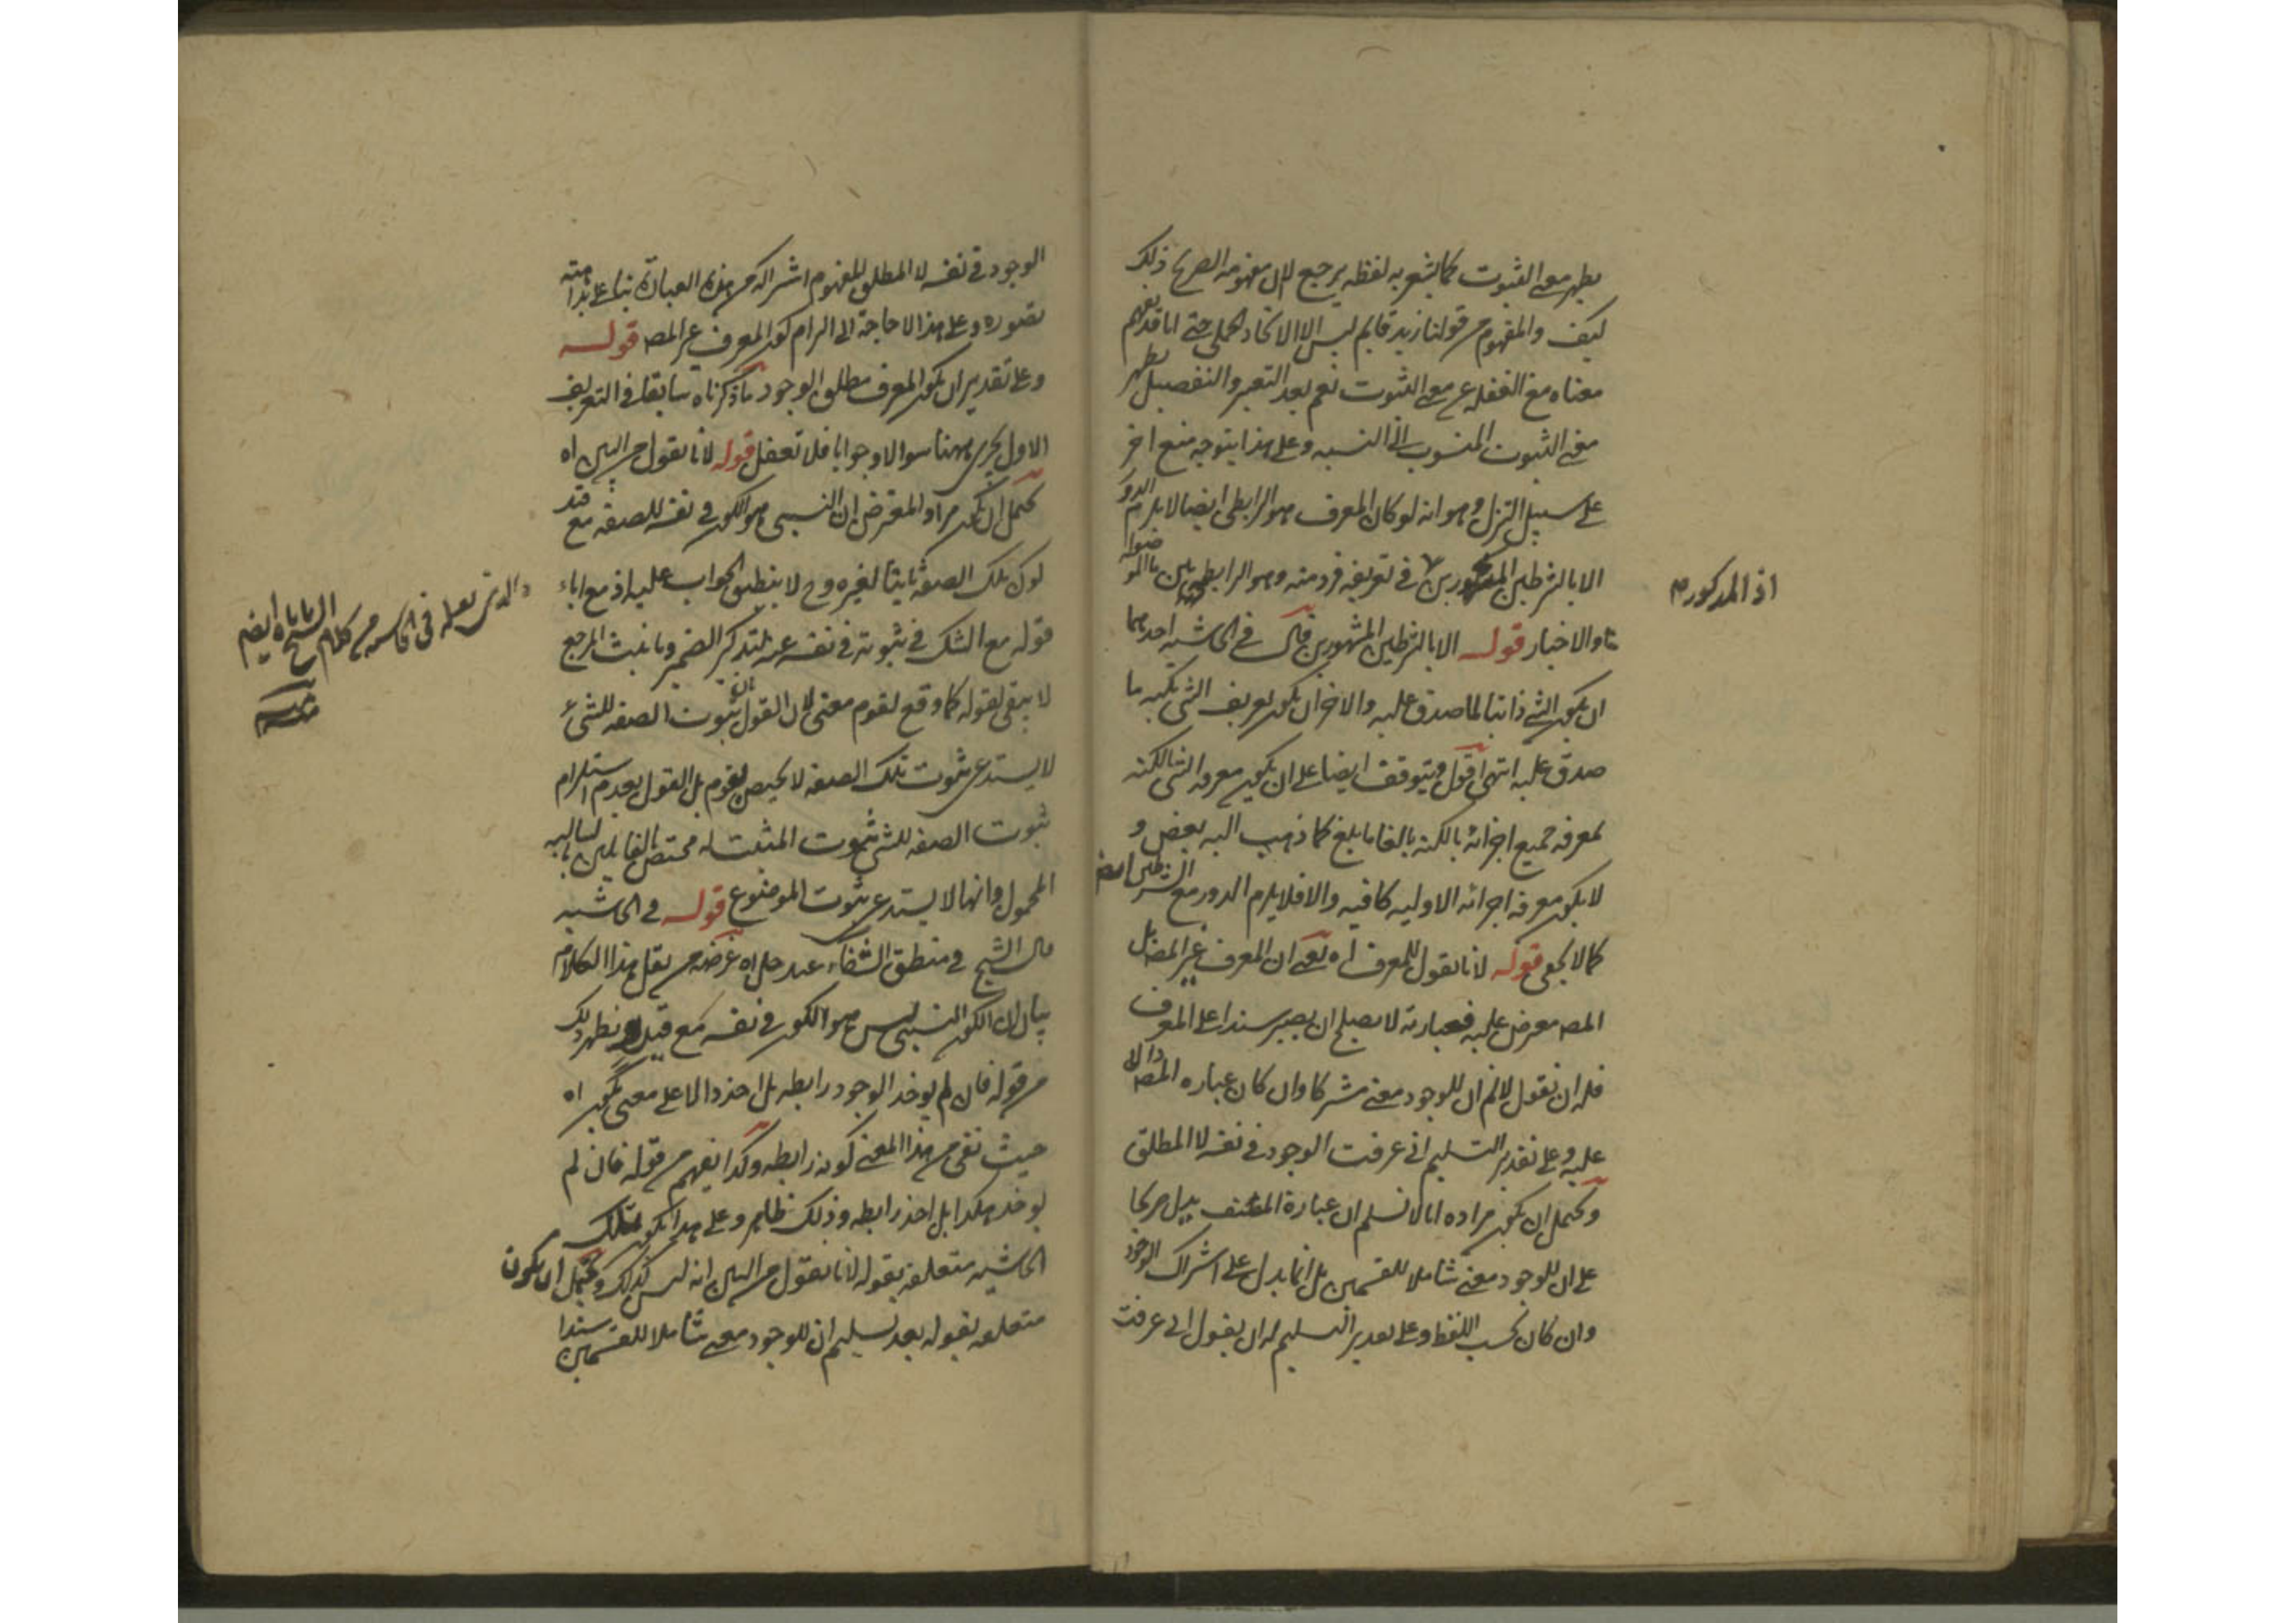 يظهر معنى الثبوت كما يشعر به لفظه يرجع لان مفهومه الصريح ذلك
كيف والمفهوم من قولنا زيد قايم ليس الا الاتحاد الحملى حتى انا قد نفهم
معناه مع الغفله عن معنى الثبوت نعم بعد التعبير والتفصيل يظهر
معنى الثبوت المنسوب الى النسبه وعلى هذا يتوجه منع اخر
على سبيل التنزل وهو انه لو كان المعرف هو الرابطى ايضا لا يلزم الدور
الا بالشرطين المذكورين في تعريفه فرد منه وهو الرابطى
والاخبار قوله الا بالشرطين المشهورين قال في الحاشيه احدهما
ان يكون الشئ ذاتيا لما صدق عليه والاخر ان يكون تعريف الشئ بكنه ما
صدق عليه انتهى اقول ويتوقف ايضا على ان يكون معرفه الشئ بالكنه
لمعرفه جميع اجزائه بالكنه بالغا ما بلغ كما ذهب اليه بعض و
لا يكون معرفه اجزائه الاوليه كافيه والا فلا يلزم الدور مع الشرطين ايضا
كما لا يخفى قوله لانا نقول للمعرف اه يعنى ان المعرف غير المصـ بل
المصـ معرض عليه فعبارته لا يصلح ان يصير سندا على المعرف
فله ان نقول لا نم ان للوجود معنى مشتركا وان كان عباره المصـ دالا
عليه وعلى تقدير التسليم انى عرفت الوجود في نفسه لا المطلق
ويحتمل ان يكون مراده انا لا نسلم ان عبارة المصنف يدل صريحا
على ان للوجود معنى شاملا للقسمين بل انما يدل على اشتراك الوجود
وان كان بحسب اللفظ وعلى تقدير التسليم له ان يقول انى عرفت
اذ المذكور صح
الوجود في نفسه لا المطلق المفهوم اشتراكه من هذه العبارة بناء على بداهته
تصوره وعلى هذا لا حاجة الى الزام كون المعرف غير المصـ قوله
وعلى تقدير ان يكون المعرف مطلق الوجود ما ذكرناه سابقا في التعريف
الاول يجرى ههنا سوالا وجوابا فلا تغفل قوله لانا نقول من البين اه
يحتمل ان يكون مراد المعترض ان النسبى هو الكون في نفسه للصفه مع قيد
كون تلك الصفه ثابتا لغيره وح لا ينطبق الجواب عليه اذ مع اباء
قوله مع الشك في ثبوته في نفسه عنه بتذكير الضمير وتانيث المرجع
لا يبقى لقوله كما وقع لقوم معنى لان القول بان ثبوت الصفه للشئ
لا يستدعى ثبوت تلك الصفه لا يختص بقوم بل القول بعدم استلزام
ثبوت الصفه للشئ ثبوت المثبت له مختص بالقايلين بسالبه
المحمول وانها لا يستدعى ثبوت الموضوع قوله في الحاشيه
قال الشيخ في منطق الشفاء عند حل اه غرضه من نقل هذا الكلام
بيان ان الكون النسبى ليس هو الكون في نفسه مع قيد ويظهر ذلك
من قوله فان لم يوخذ الوجود رابطه بل اخذ دالا على معنى يكون اه
حيث نفى من هذا المعنى كونه رابطه وكذا يفهم من قوله فان لم
يوخذ هكذا بل اخذ رابطه وذلك ظاهر وعلى هذا يكون تلك
الحاشيه متعلقه بقوله لانا نقول من البين انه ليس كذلك ويحتمل ان يكون
متعلقه بقوله بعد تسليم ان للوجود معنى شاملا للقسمين سندا
والذى نقله في الحاشيه من كلام الشيخ اباه ايضا